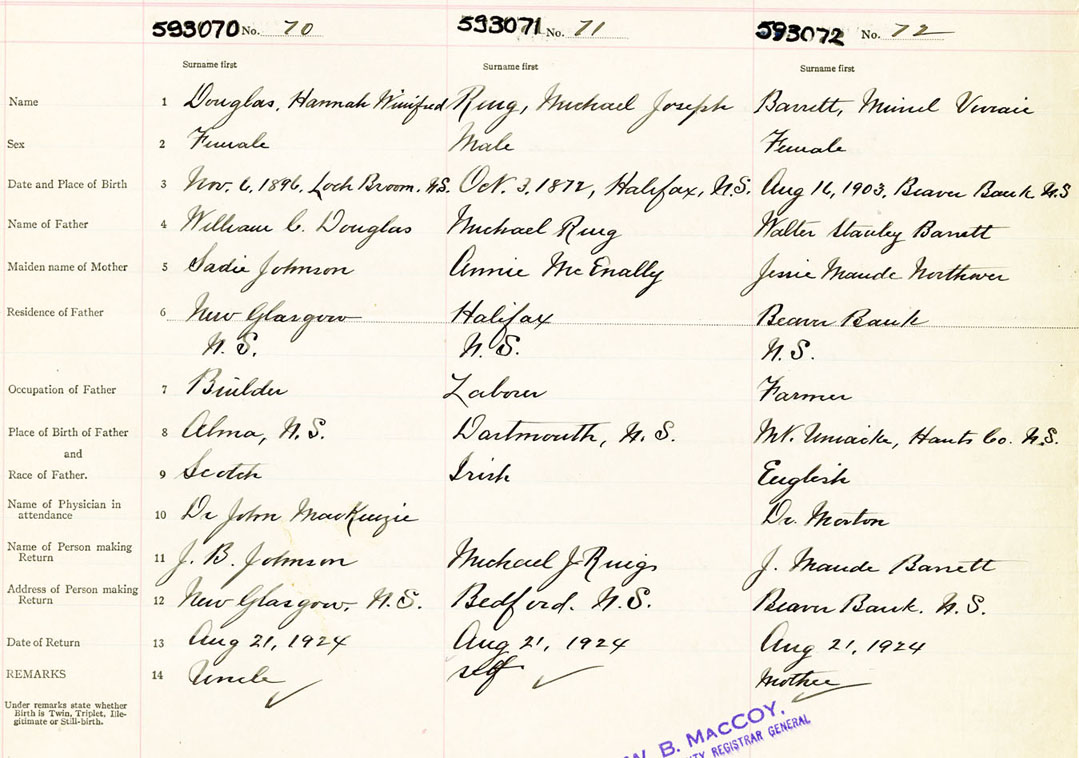 593070 No. 70 593071 No. 71 593072 No. 72
Surname first Surname first Surname first
Name 1 Douglas, Hannah Winifred Ring, Michael Joseph Barrett, Muriel
Sex 2 Female Male Female
Date and Place of Birth 3 Nov. 6, 1896, Loch Broom. N.S. Oct. 3, 1872, Halifax, N.S. Aug 16, 1903, Beaver Bank N.S
Name of Father 4 William C. Douglas Michael Ring Walter Stanley Barrett
Maiden name of Mother 5 Sadie Johnson Annie McEnally Jessie Maude Northover
Residence of Father 6 New Glasgow Halifax Beaver Bank
N.S. N.S. N.S.
Occupation of Father 7 Builder Laborer Farmer
Place of Birth of Father 8 Alma, N.S. Dartmouth, N.S. Mt. Uniacke, Hants Co. N.S.
and
Race of Father. 9 Scotch Irish English
Name of Physician in
attendance 10 Dr John MacKenzie Dr. Morton
Name of Person making
Return 11 J. B. Johnson Michael J. Ring J. Maude Barrett
Address of Person making
Return 12 New Glasgow, N.S. Bedford. N.S. Beaver Bank. N.S.
Date of Return 13 Aug 21, 1924 Aug 21, 1924 Aug 21, 1924
REMARKS 14 Uncle self Mother
Under remarks state whether
Birth is Twin, Triplet, Ille-
gitimate or Still-birth.
W. B. MacCOY,
REGISTRAR GENERAL